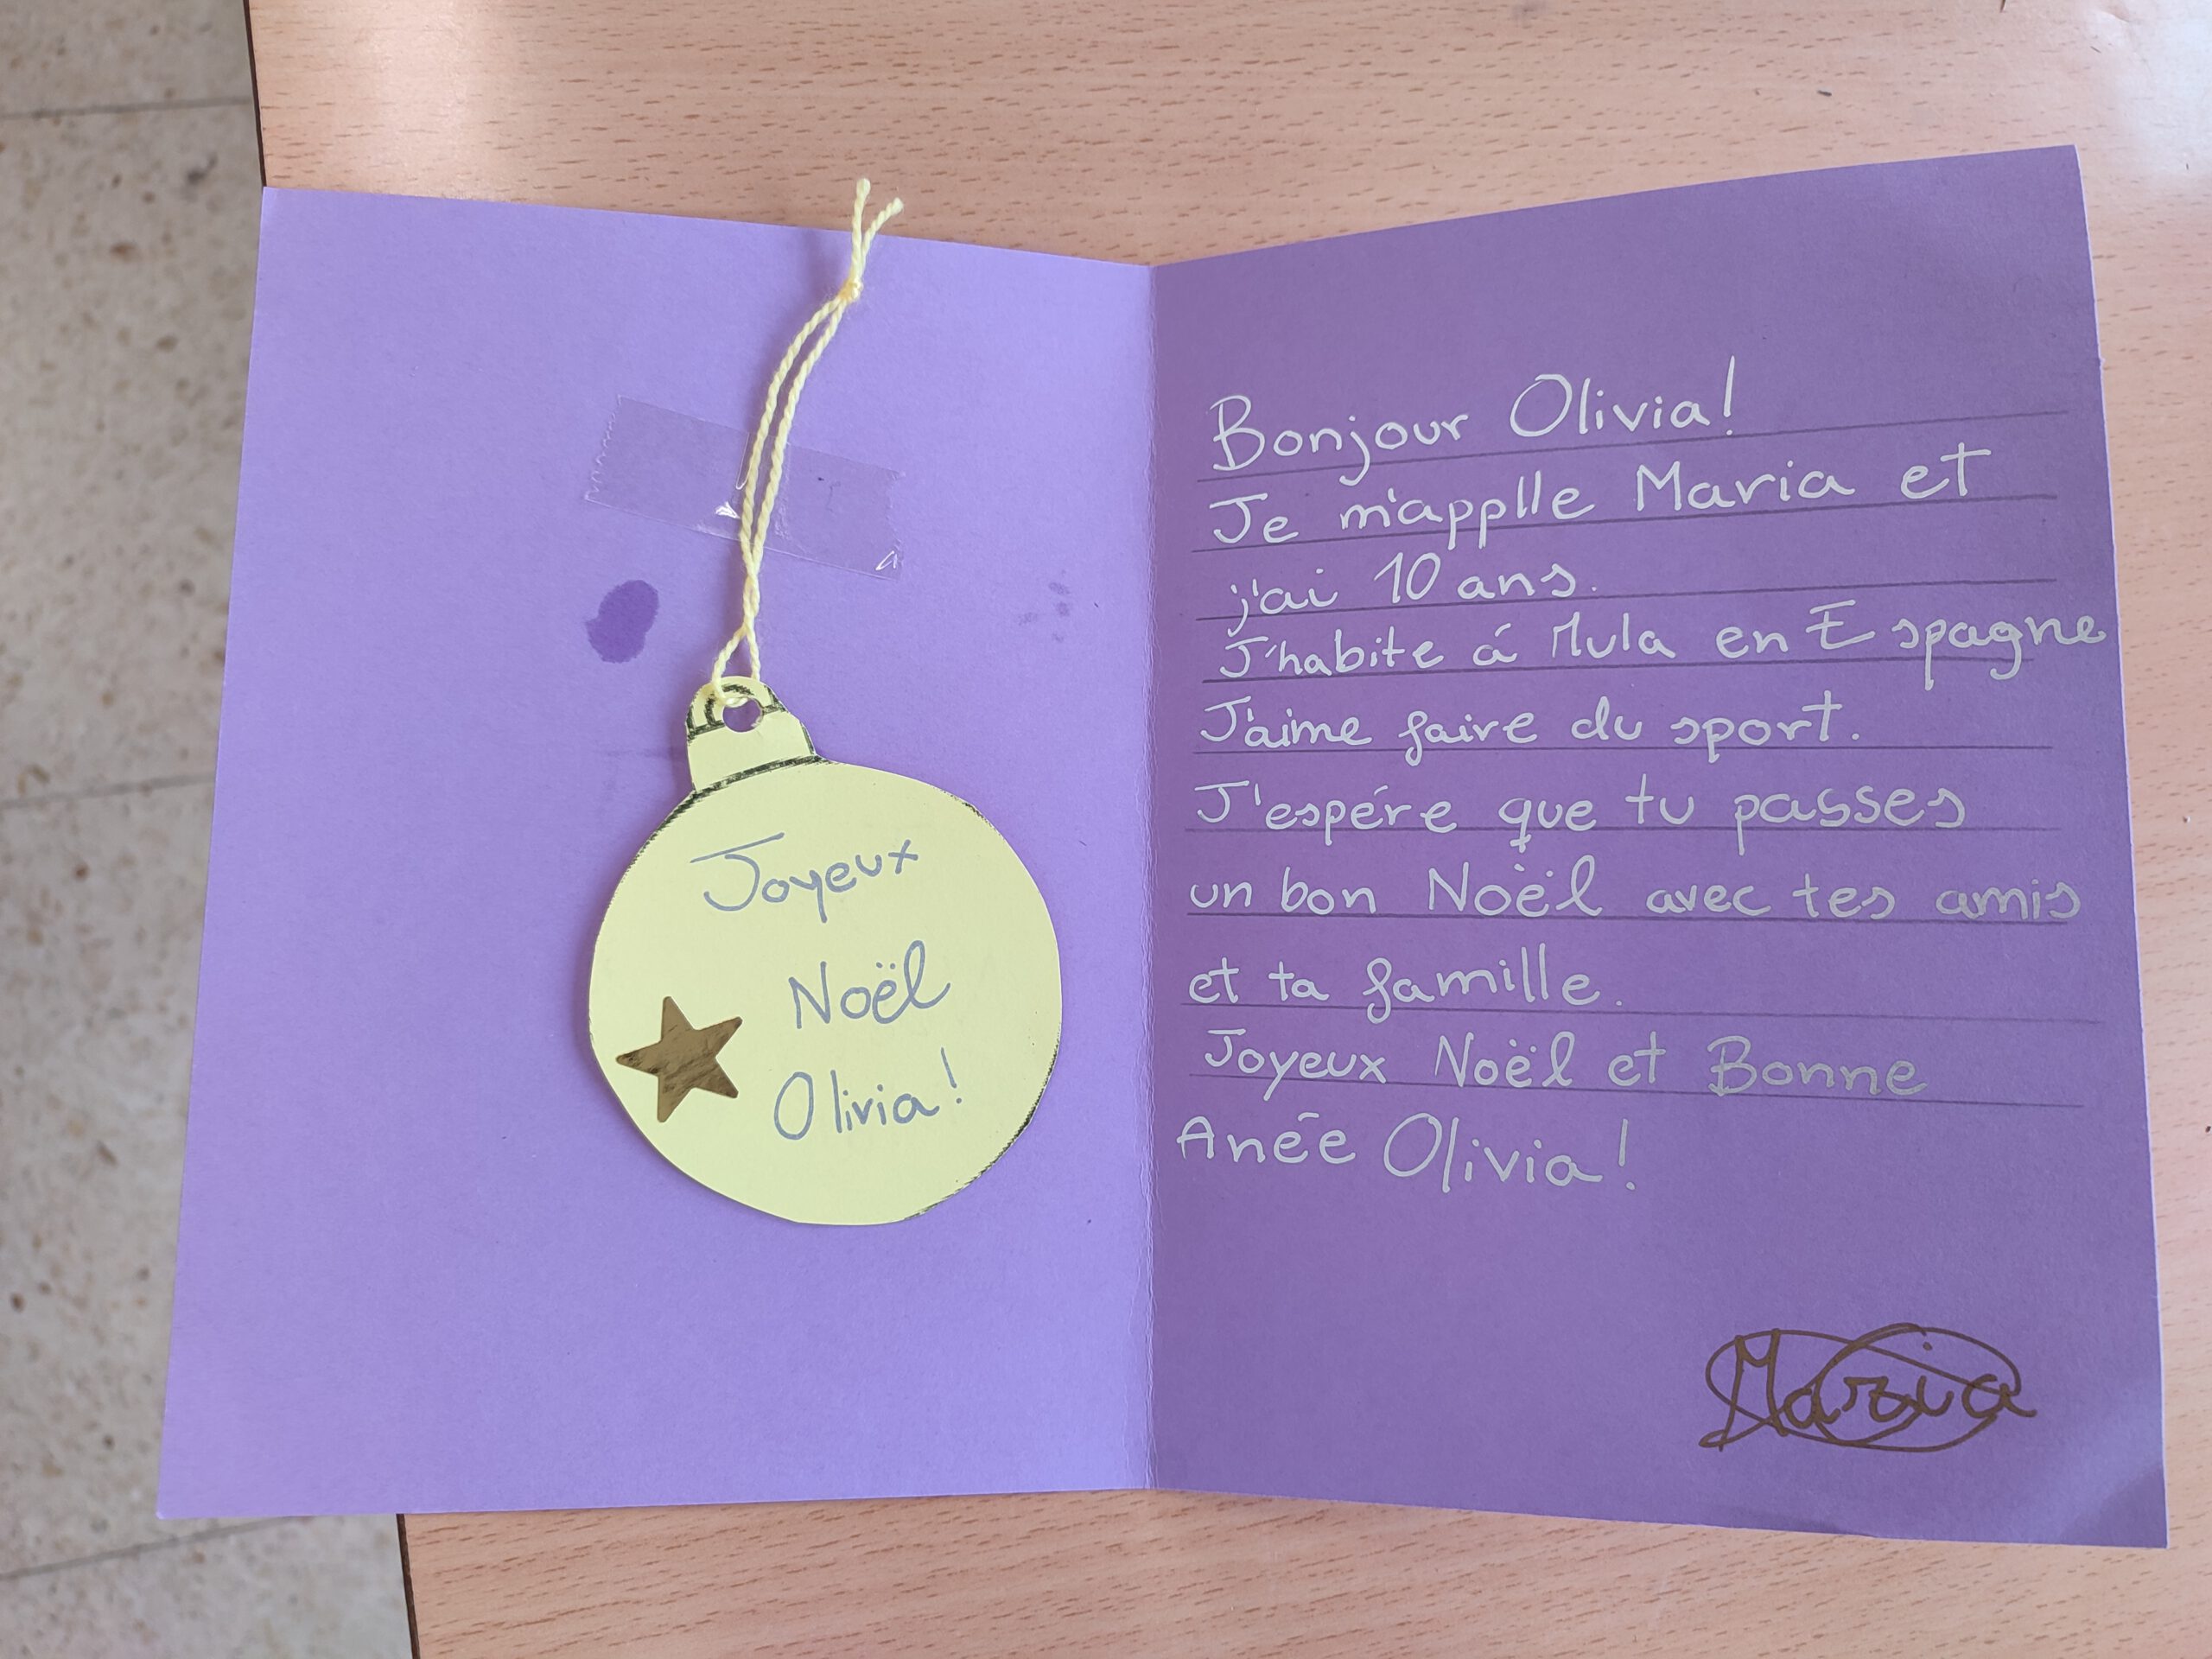 Joyeux
Noël
Olivia!
Bonjour Olivia!
Je m'applle Maria et
j'ai 10 ans.
J'habite á Mula en Espagne
J'aime faire du sport.
J'espére que tu passes
un bon Noël avec tes amis
et ta famille.
Joyeux Noël et Bonne
Anée Olivia!
Maria